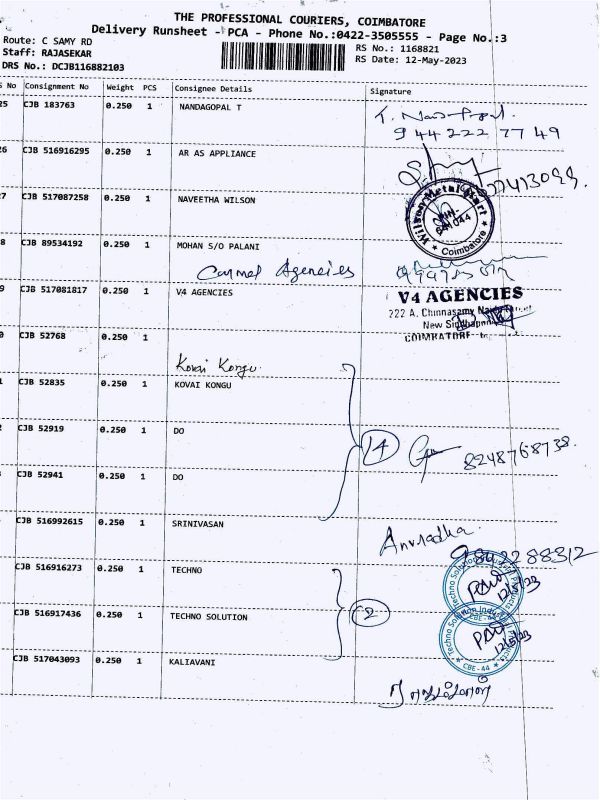 THE PROFESSIONAL COURIERS, COIMBATORE
Delivery Runsheet - PCA - Phone No.:0422-3505555 - Page No.:3
Route: C SAMY RD
Staff: RAJASEKAR
DRS No.: DCJB116882103
RS No.: 1168821
RS Date: 12-May-2023
S No Consignment No Weight PCS Consignee Details Signature
25 CJB 183763 0.250 1 NANDAGOPAL T
944222 7749
26 CJB 516916295 0.250 1 AR AS APPLIANCE
7 CJB 517087258 0.250 1 NAVEETHA WILSON
Wilson Metal Mart
641044
Coimbatore
8 CJB 89534192 0.250 1 MOHAN S/O PALANI
Carmel Agencies
9 CJB 517081817 0.250 1 V4 AGENCIES
V4 AGENCIES
222 A. Chinnasamy Naidu Street
New Siddhapudur
COIMBATORE
0 CJB 52768 0.250 1
Kovai Kongu
1 CJB 52835 0.250 1 KOVAI KONGU
2 CJB 52919 0.250 1 DO
14
8248768738
CJB 52941 0.250 1 DO
CJB 516992615 0.250 1 SRINIVASAN
Anuradha
9842288312
CJB 516916273 0.250 1 TECHNO
Techno Solution Industrial Products
12/5/23
CJB 516917436 0.250 1 TECHNO SOLUTION
2
Techno Solution Industrial Products
12/5/23
CBE-44
CJB 517043093 0.250 1 KALIAVANI